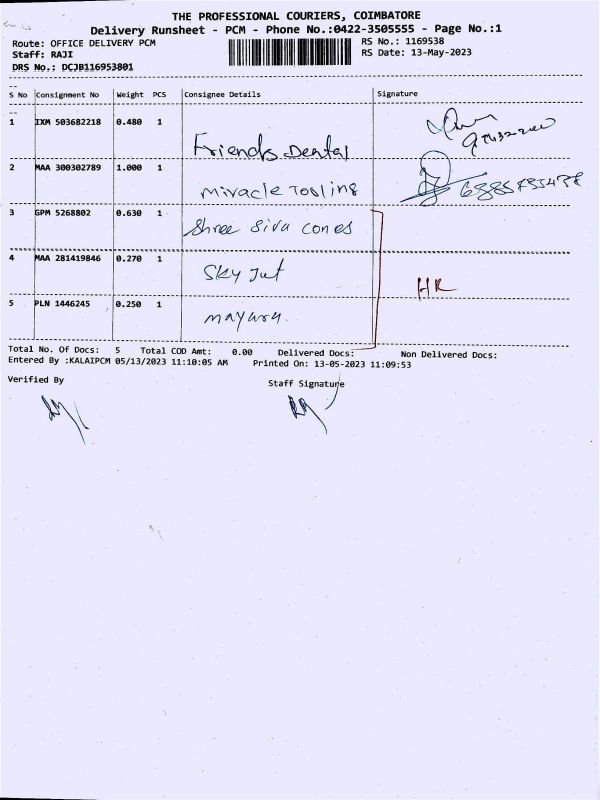 THE PROFESSIONAL COURIERS, COIMBATORE
Delivery Runsheet - PCM - Phone No.:0422-3505555 - Page No.:1
Route: OFFICE DELIVERY PCM RS No.: 1169538
Staff: RAJI RS Date: 13-May-2023
DRS No.: DCJB116953801
S No Consignment No Weight PCS Consignee Details Signature
1 IXM 503682218 0.480 1
Friends Dental
2 MAA 300302789 1.000 1
Miracle Tooling
3 GPM 5268802 0.630 1 Shree Siva cones
4 MAA 281419846 0.270 1
Sky Jut
HR
5 PLN 1446245 0.250 1
mayura
Total No. Of Docs: 5 Total COD Amt: 0.00 Delivered Docs: Non Delivered Docs:
Entered By :KALAIPCM 05/13/2023 11:10:05 AM Printed On: 13-05-2023 11:09:53
Verified By Staff Signature